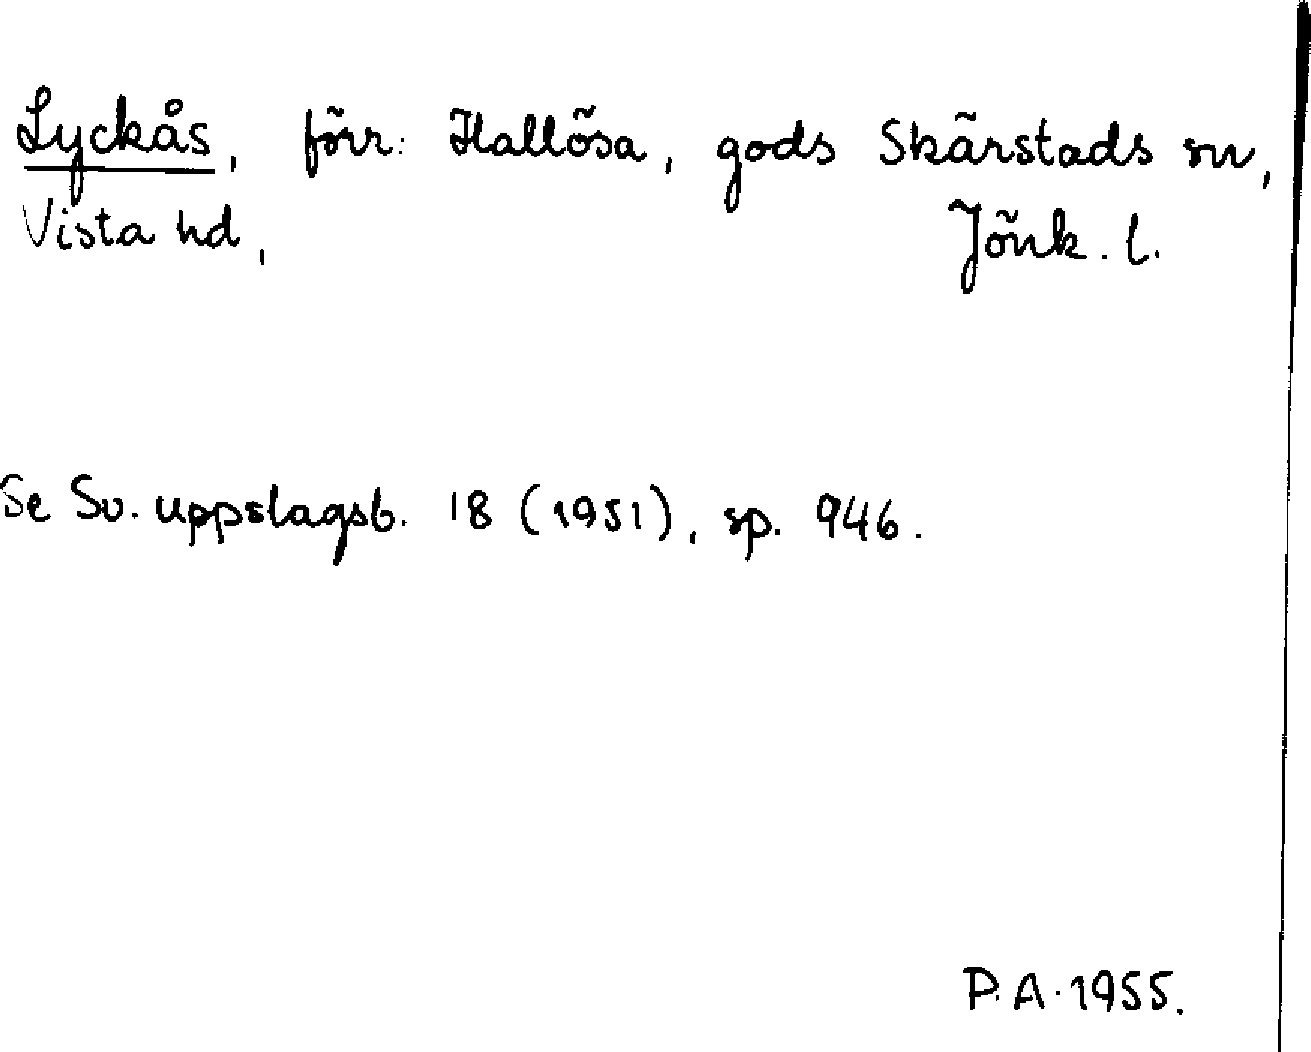 Lyckås, förr: Hallösa, gods Skärstads sn,
Vista hd, Jönk. l.
Se Sv. uppslagsb. 18 (1951), sp. 946.
P.A. 1955.